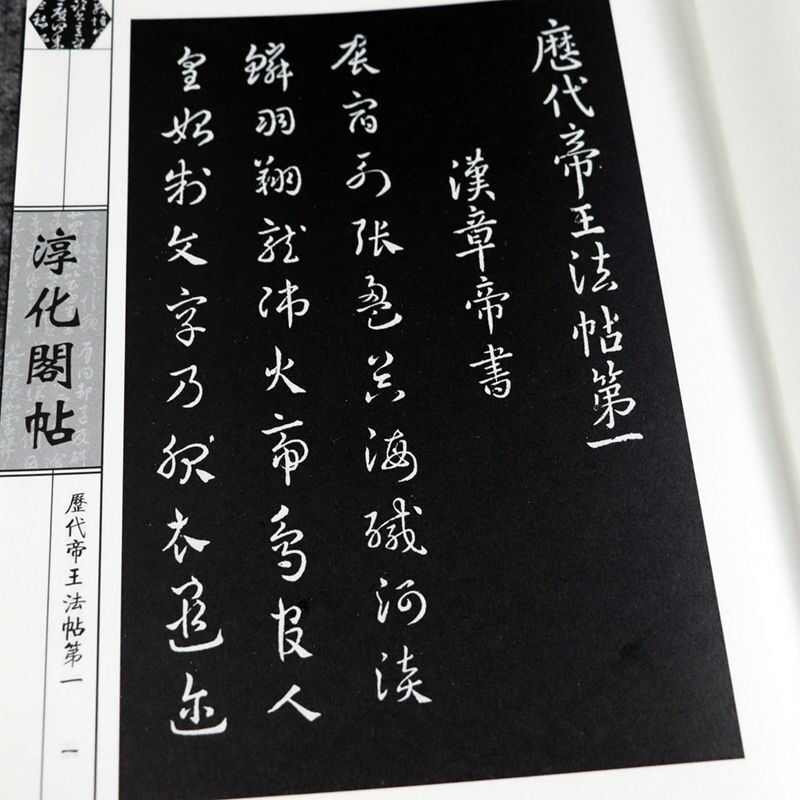 歷代帝王法帖第一
漢章帝書
辰宿列張盈昃海鹹河淡
鱗羽翔龍師火帝鳥官人
皇始制文字乃服衣遐迩
淳化閣帖
歷代帝王法帖第一
一